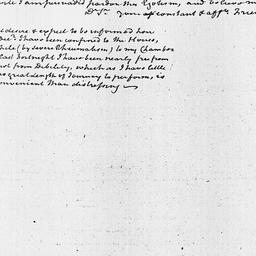 I am persuaded pardon this Egotism, and believe m
Dr Sr. your aff constant & affte. Frien
desire & expect to be informed how
Decr. I have been confined to the House,
while (by severe Rheumatism) to my Chamber
last Fortnight I have been nearly free from
not from Debility, which as I have little
no great length of Journey to perform, is
onvenient than distressing